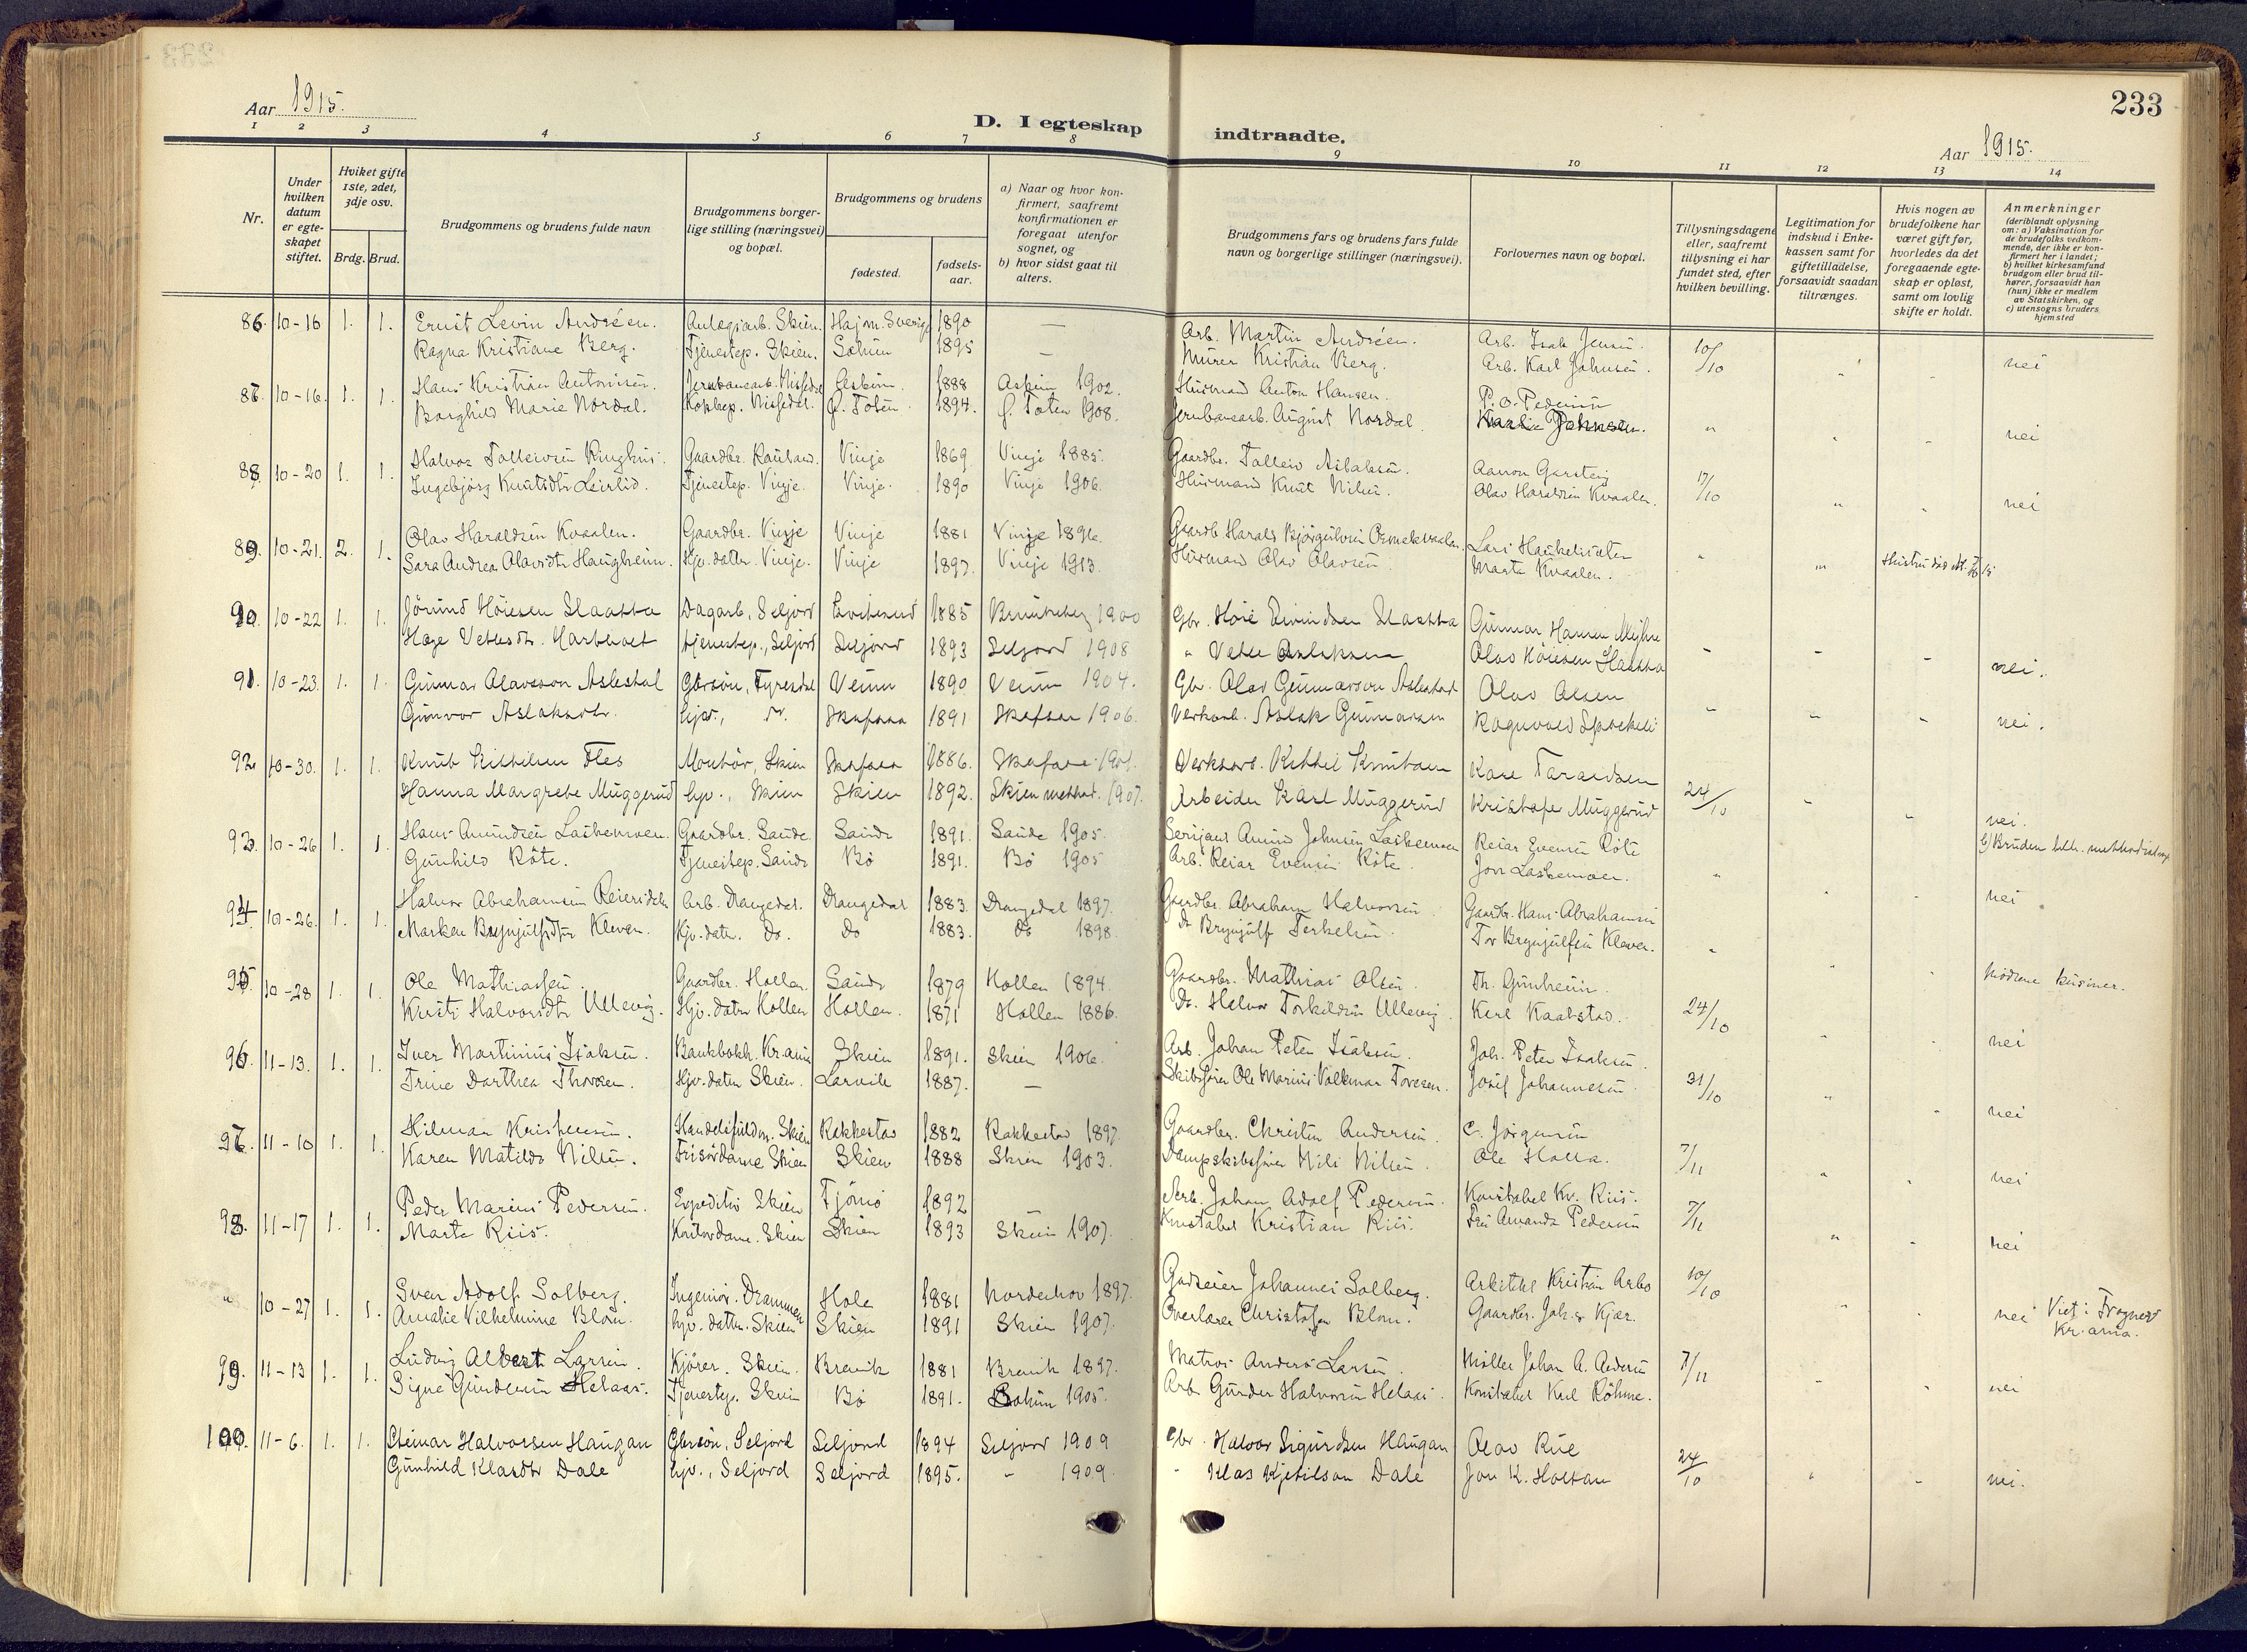 233
Aar 1915.
D. I egteskap indtraadte.
Aar 1915.
1 2 3 4 5 6 7 8 9 10 11 12 13 14
Nr.
Under hvilken datum er egteskapet stiftet.
Hviket gifte 1ste, 2det, 3dje osv.
Brdg. Brud.
Brudgommens og brudens fulde navn
Brudgommens borgerlige stilling (næringsvei) og bopæl.
Brudgommens og brudens
fødested.
fødselsaar.
a) Naar og hvor konfirmert, saafremt konfirmationen er foregaat utenfor sognet, og
b) hvor sidst gaat til alters.
Brudgommens fars og brudens fars fulde navn og borgerlige stillinger (næringsvei).
Forlovernes navn og bopæl.
Tillysningsdagene eller, saafremt tillysning ei har fundet sted, efter hvilken bevilling.
Legitimation for indskud i Enkekassen samt for giftetilladelse, forsaavidt saadan tiltrænges.
Hvis nogen av brudefolkene har været gift før, hvorledes da det foregaaende egteskap er opløst, samt om lovlig skifte er holdt.
Anmerkninger
(deriblandt oplysning om: a) Vaksination for de brudefolks vedkommende, der ikke er konfirmert her i landet; b) hvilket kirkesamfund brudgom eller brud tilhører, forsaavidt han (hun) ikke er medlem av Statskirken, og c) utensogns bruders hjemsted
86. 10-16 1. 1. Ernst Levin Andréen. Anlægsarb. Skien. Sverige 1890 — Arb. Martin Andréen. Arb. Isak Jensen. 10/10 nei
Ragna Kristiane Berg. Tjenestep. Skien. Solum 1895 — Murer Kristian Berg. Arb. Karl Johnsen.
87. 10-16. 1. 1. Hans Kristian Antonisen. Jernbanearb. Nissedal Askim. 1888 Askim 1902. Husmand Anton Hansen. P. O. Pedersen " nei
Borghild Marie Nordal. Kokkep. Nissedal. Ø. Toten 1894. Ø. Toten 1908. Jernbanearb. August Nordal. Johnsen.
88. 10-20 1. 1. Halvor Talleivsen Ringhus. Gaardbr. Rauland. Vinje 1869 Vinje 1885. Gaardbr. Talleiv Aslaksen. Aanon Garsteig 17/10 nei
Ingebjørg Knutsdtr Leirlid. Tjenestep. Vinje. Vinje. 1890 Vinje 1906. Husmand Knut Nilsen. Olav Haraldsen Kvaalen.
89. 10-21. 2. 1. Olav Haraldsen Kvaalen. Gaardbr. Vinje Vinje 1881 Vinje 1896. Gaardb. Harald Bjørgulvsen Lars Haukelisæter "
Sara Andrea Olavsdtr Haugheim. Hjv. datter. Vinje. Vinje 1897. Vinje 1913. Husmand Olav Olavsen. Marta Kvaalen.
90. 10-22 1. 1. Jörund Höiesen Slaatta Dagarb., Seljord 1885 1900 Gbr. Höie Eivindsen Slaatta Gunnar Hansen Myhre
Hæge Vetlesdtr. tjenestep., Seljord Seljord 1893 Seljord 1908 " Vetle Aslaksen Olav Höiesen Slaatta nei.
91. 10-23. 1. 1. Gunnar Olavsson Aslestad Gbrsön, Fyresdal Veum 1890 Veum 1904. Gbr. Olav Gunnarson Aslestad Olav Olsen
Gunvor Aslaksdtr. hjv., " Skafsaa 1891 Skafsaa 1906. Verkarb. Aslak Gunnarsen Ragnvald nei.
92 10-30. 1. 1. Knut Kittilsen Fles Montör, Skien Skafsaa 1886. Skafsaa 1901. Verksarb. Kittil Knutsen Kare Taraldsen
Hanna Margrete Muggerud hjv., Skien Skien 1892. Skien method. 1907. Arbeider Karl Muggerud Kristofer Muggerud 24/10 nei.
93. 10-26 1. 1. Hans Amundsen Laskemoen. Gaardbr. Saude Saude 1891. Saude 1905. Serjant Amund Johnsen Laskemoen Reiar Evensen Röte b) Bruden
Gunhild Röte. Tjenestep. Saude Bø 1891. Bø 1905 Arb. Reiar Evensen Röte. Jon Laskemoen. " nei
94 10-26. 1. 1. Halvor Abrahamsen Arb. Drangedal. Drangedal 1883. Drangedal 1897. Gaardbr. Abraham Halvorsen. Gaardbr. Hans Abrahamsen
Marken Brynjulfsdtr Kleven. Hjv. datr. do. do 1883. do 1898. do Brynjulf Terkelsen. Tov Brynjulfsen Kleven. "
95 10-28 1. 1. Ole Mathiassen. Gaardbr. Hollen. Saude 1879 Hollen 1894. Gaardbr. Mathias Olsen. Th. Gunheim.
Kirsti Halvorsdtr Ullevig. Hjv. dater Hollen Hollen. 1871 Hollen 1886. do. Halvor Torkildsen Ullevig. Karl Kaastad. 24/10 nei
96. 11-13. 1. 1. Iver Martinius Isaksen. Bankbokh. Kr.ania Skien 1891. Skien 1906. Arb. Johan Peter Isaksen. Joh. Peter Isaksen.
Trine Dorthea Thorsen. Hjv. dater Skien. Larvik 1887. — Skibsfører Ole Marius Volkmar Toresen. Josef Johannesen. 31/10 nei
97. 11-10 1. 1. Hilmar Kristensen. Handelsfuldm. Skien Rakkestad 1882 Rakkestad 1897. Gaardbr. Christen Andersen. C. Jørgensen
Karen Matilde Nilsen. Frisørdame Skien Skien 1888 Skien 1903. Dampskibsfører Nils Nilsen. Ole Holla. 7/11 nei
98. 11-17 1. 1. Peder Marius Pedersen. Expeditør Skien Tjömö 1892 Arb. Johan Adolf Pedersen. Konstabel Kr. Riis.
Marta Riis. Kontordame. Skien Skien 1893 Skien 1907. Konstabel Kristian Riis. Fru Amanda Pedersen 7/11 nei
" 10-27 1. 1. Sven Adolf Solberg. Ingeniør. Drammen Hole 1881 Norderhov 1897. Godseier Johannes Solberg. Arkitekt Kristian Arbo 10/10
Amalie Vilhelmine Blom. hjv. datter. Skien Skien 1891 Skien 1907. Overlærer Christofer Blom. Gaardbr. Joh. Kjær. nei Viet i Frogner Kr.ania.
99. 11-13 1. 1. Ludvig Albert Larsen. Kjører. Skien. Brevik 1881 Brevik 1897. Matros Anders Larsen. Møller Johan A. Pedersen 7/11
Signe Gundersen Helaas. Tjenestep. Skien Bø 1891. Solum 1905. Arb. Gunder Halvorsen Helaas. Konstabel Karl Röhme. nei
100. 11-6. 1. 1. Steinar Halvorsen Haugan Gbrsön, Seljord Seljord 1894 Seljord 1909 Gbr. Halvor Sigurdsen Haugan Olav Rue
Gunhild Klasdtr Dale hjv., Seljord Seljord 1895. " 1909. " Klas Kjetilson Dale Jon K. Holtan 24/10 nei.